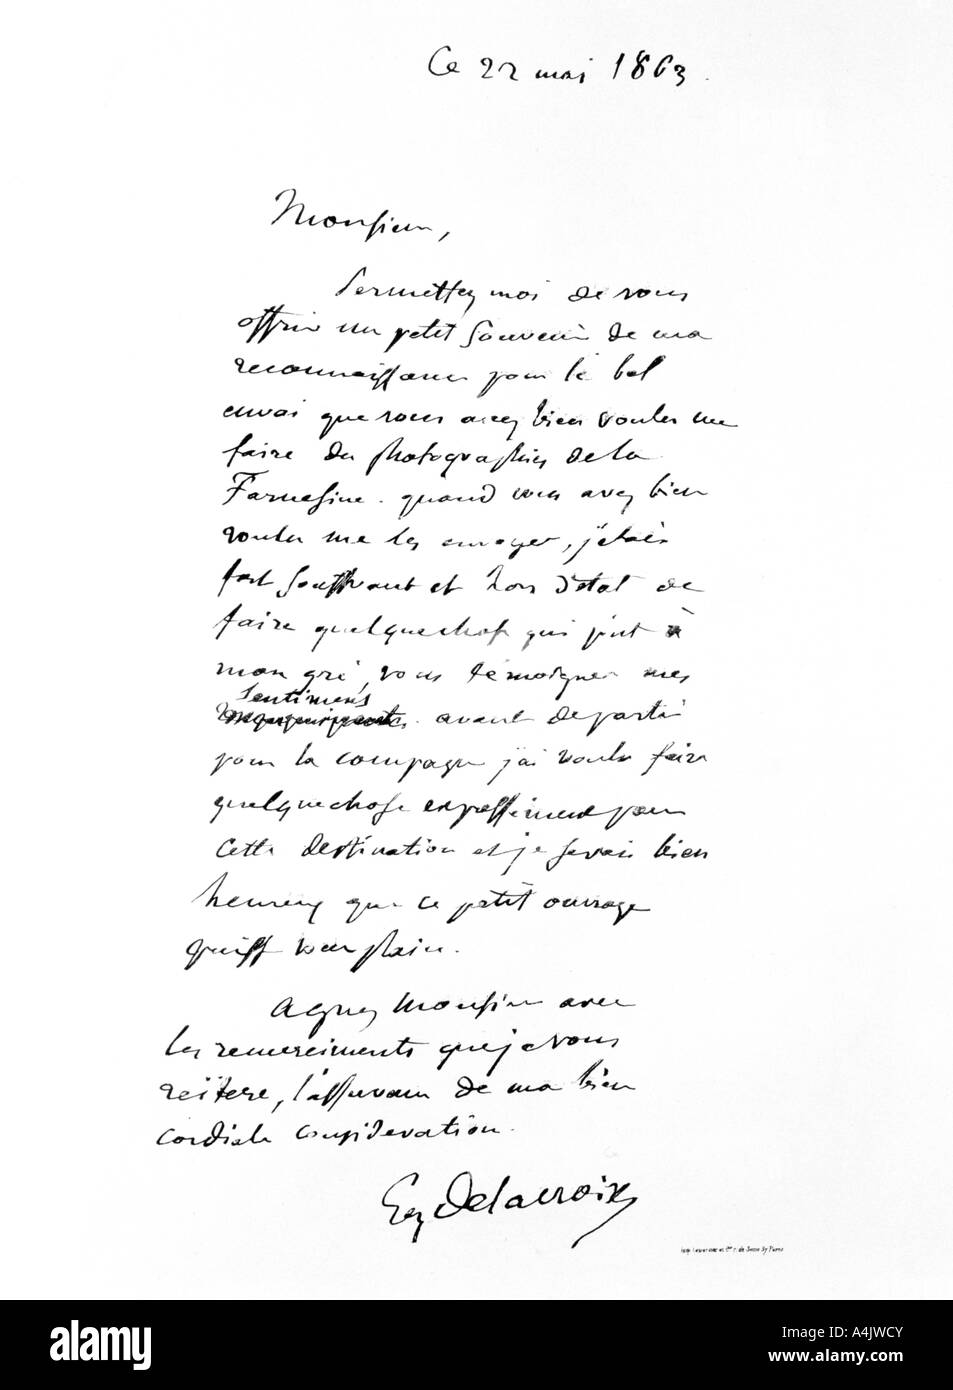 Ce 22 mai 1863.
Monsieur,
Permettez moi de vous
offrir un petit souvenir de ma
reconnaissance pour le bel
envoi que vous avez bien voulu me
faire des photographies de la
Farnesine. quand vous avez bien
voulu me les envoyer, j'étais
fort souffrant et hors d'état de
faire quelque chose qui put à
mon gré, vous témoigner mes
sentiments
avant de partir
pour la campagne j'ai voulu faire
quelque chose expressément pour
cette destination et je serais bien
heureux que ce petit ouvrage
puisse vous plaire.
Agréez Monsieur avec
les remerciments que je vous
réitère, l'assurance de ma bien
cordiale considération.
Eug Delacroix
alamy
Image ID: A4JWCY
www.alamy.com